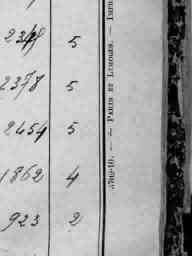 5
2378 5
2454 5
1862 4
923 2
PARIS ET LIMOGES. —